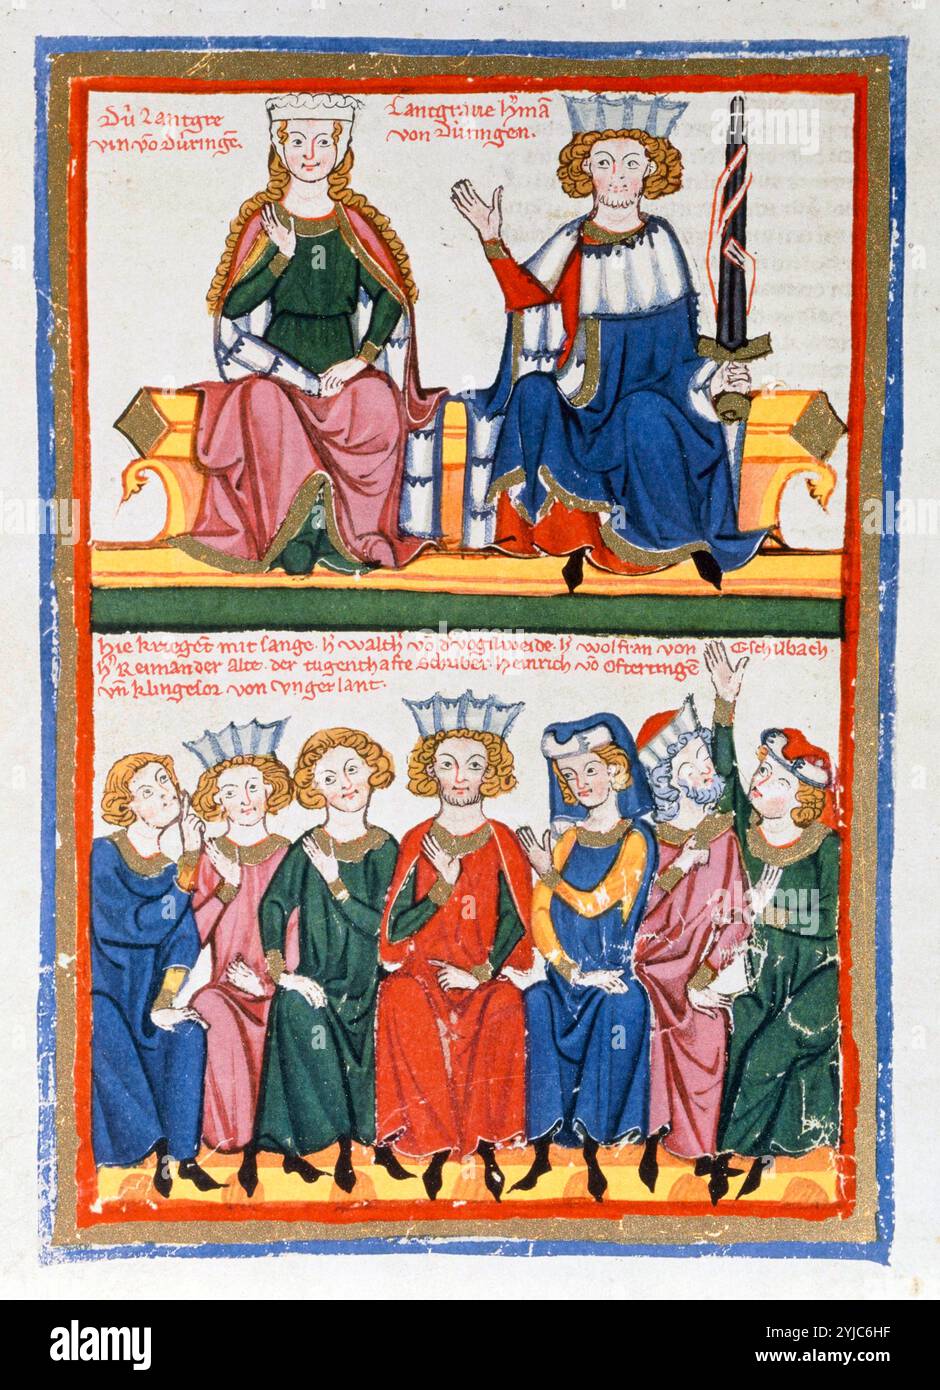 Dú Lantgre
vin võ Düringẽ.
Lantgrave h'mã
von Düringen.
hie krieget mit sange. h' walth' võ d' vogilweide. h' wolfran von Eschilbach
h' Reimãn der Alte. der tugenthafte Schriber. heinrich võ Ofteringẽ
vñ klingesor von vngerlant.
alamy
Image ID: 2YJC6HF
www.alamy.com